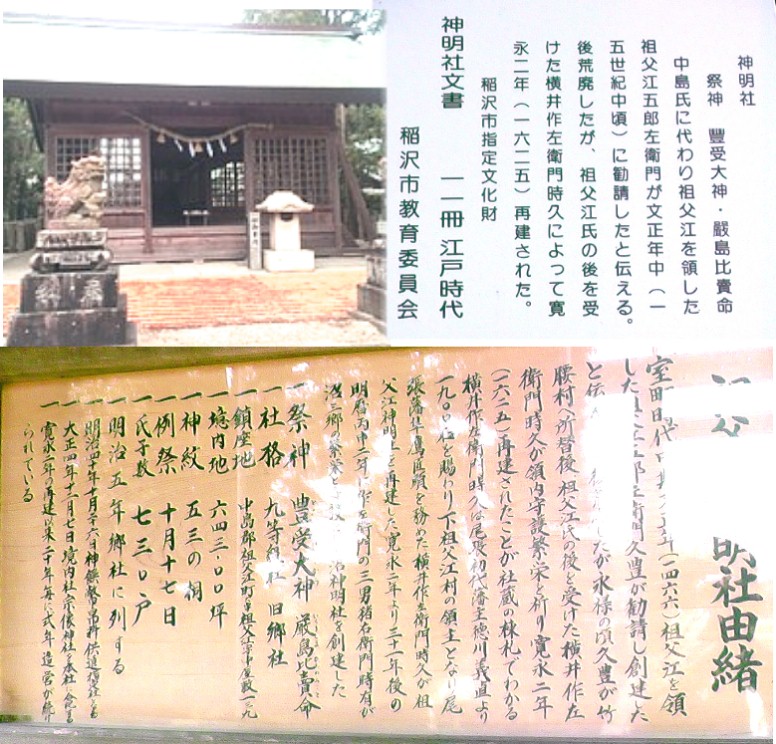 神明社
祭神　豐受大神・嚴島比賣命
中島氏に代わり祖父江を領した
祖父江五郎左衛門が文正年中（一
五世紀中頃）に勧請したと伝える。
後荒廃したが、祖父江氏の後を受
けた横井作左衛門時久によって寛
永二年（一六二五）再建された。
稲沢市指定文化財
神明社文書　一一冊 江戸時代
稲沢市教育委員会
明社由緒
室町時代中期 正年（一四六六）祖父江を領
した 五郎左衛門久豊が勧請し創建した
と伝 したが永禄の頃久豊が竹
腰村へ所替後祖父江氏の後を受けた横井作左
衛門時久が領内守護繁栄を祈り寛永二年
（一六二五）再建されたことが社蔵の棟札でわかる
横井作左衛門時久は尾張初代藩主徳川義直より
一九〇〇石を賜わり下祖父江村の領主となり尾
張藩 頭を務めた横井作左衛門時久が祖
父江神明社を再建した寛永二年より三十一年後の
明暦丙申二年に作左衛門の三男 右衛門時有が
神明社を創建した
一 祭神　豊受大神　厳島比賣命
一 社格　九等級社　旧郷社
一 鎮座地　中島郡祖父江町大字祖父江字中屋敷一一九
一 境内地　六四三・〇〇坪
一 神紋　五三の桐
一 例祭　十月十七日
一 氏子数　七三〇戸
一 明治五年郷社に列する
一 明治四十年十月二十六日神饌幣帛料供進指定となる
一 大正四年十二月七日境内社 神社を本社に合祀する
一 寛永二年の再建以来二十年毎に式年造営が続け
られている